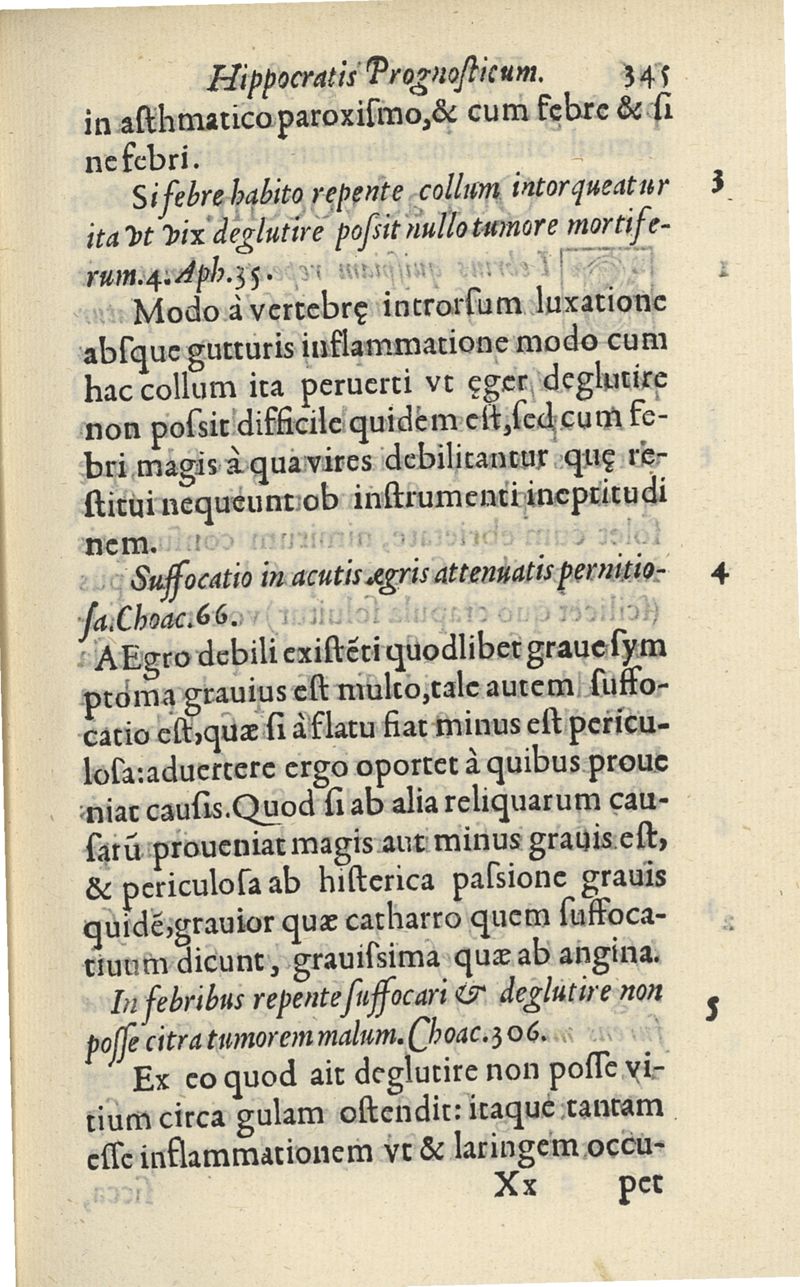 Hippocratis Prognosticum. 345
in asthmatico paroxismo,& cum febre & si
ne febri.
Si febre habito repente collum intorqueatur 3
ita vt vix deglutire possit nullo tumore mortife-
rum.4.Aph.35.
Modo à vertebrę introrsum luxatione
absque gutturis inflammatione modo cum
hac collum ita peruerti vt ęger deglutire
non possit difficile quidem est,sed cum fe-
bri magis à qua vires debilitantur quę re-
stitui nequeunt ob instrumenti ineptitudi
nem.
Suffocatio in acutis ægris attenuatis pernitio- 4
sa.Choac.66.
AEgro debili existẽti quodlibet graue sym
ptoma grauius est multo,tale autem suffo-
catio est,quæ si à flatu fiat minus est pericu-
losa:aduertere ergo oportet à quibus proue
niat causis.Quod si ab alia reliquarum cau-
sarũ proueniat magis aut minus grauis est,
& periculosa ab histerica passione grauis
quidẽ,grauior quæ catharro quem suffoca-
tiuum dicunt, grauissima quæ ab angina.
In febribus repente suffocari & deglutire non 5
posse citra tumorem malum.Choac.306.
Ex eo quod ait deglutire non posse vi-
tium circa gulam ostendit: itaque tantam
esse inflammationem vt & laringem occu-
Xx pet